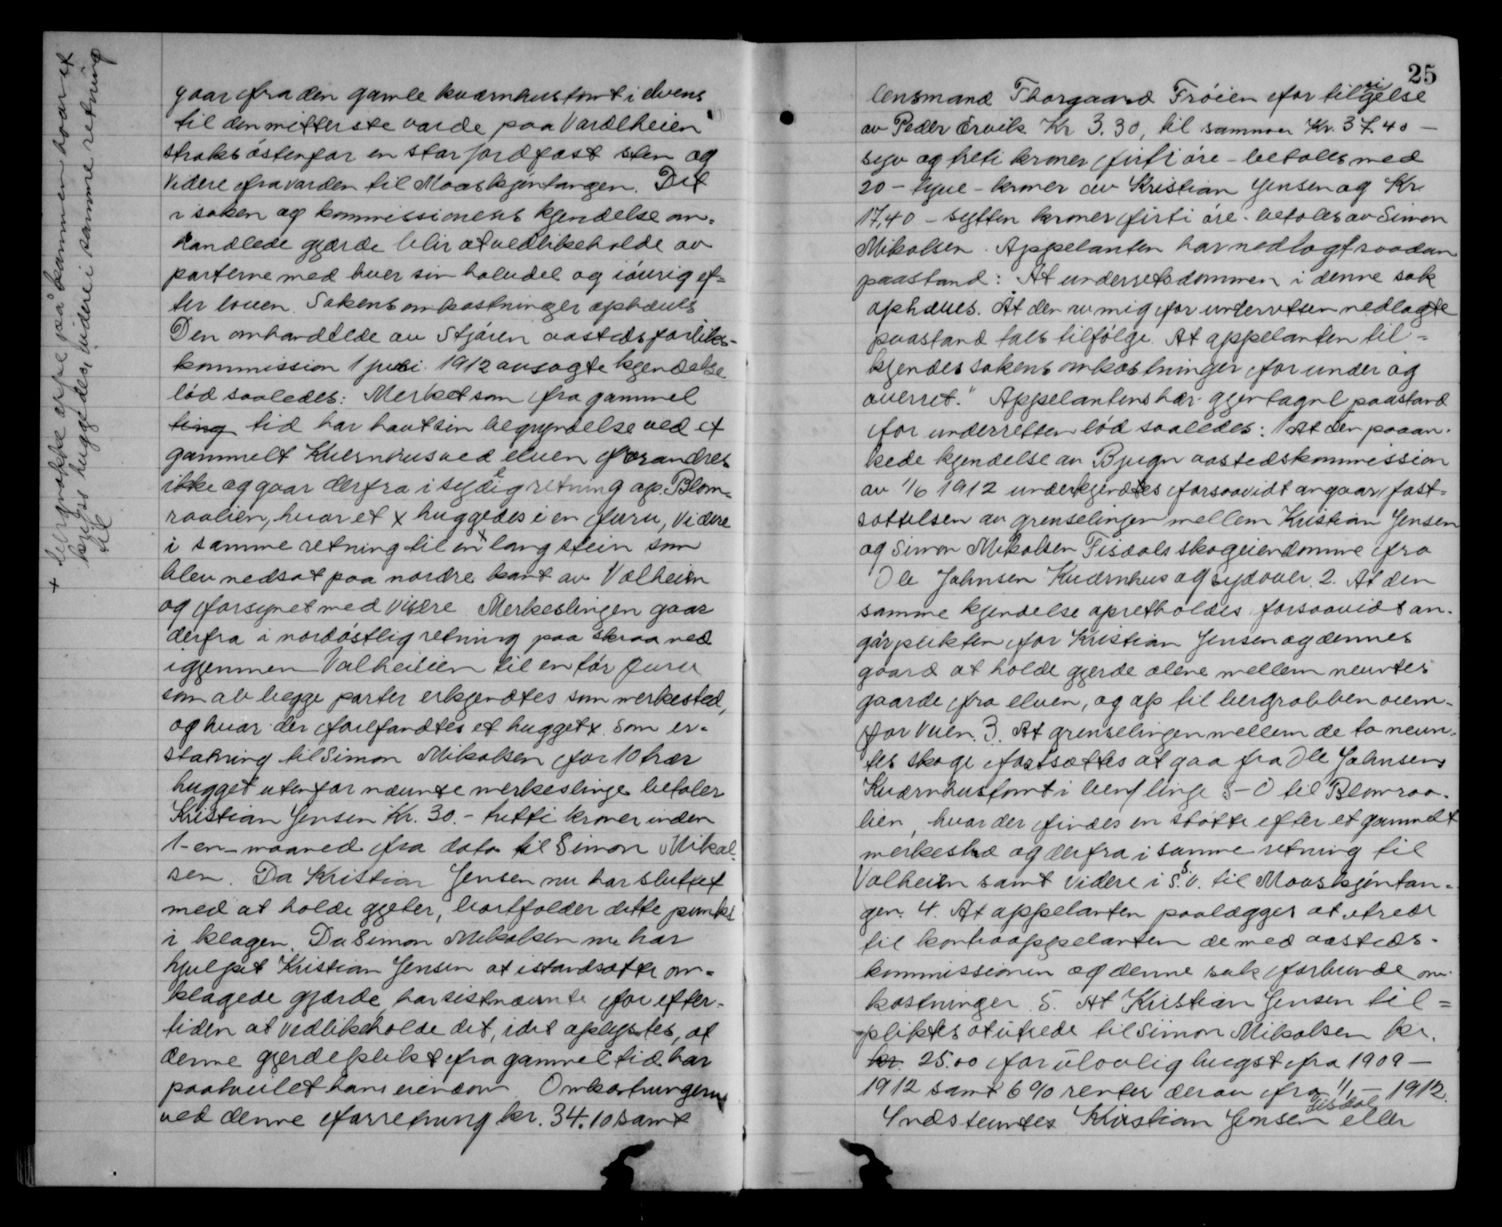 gaar fra den gamle kværnhustomt i elvens
til den mitterste varde paa Vardlheien
straks østenfor en stor jordfast sten og
videre fra varden til Maaskjøntangen. Det
i saken og kommissionens kjendelse om-
handlede gjærde blir at vedlikeholde av
parterne med hver sin halvdel og iøvrig ef-
ter loven. Sakens omkostninger ophæves
Den omhandlede av Stjøren aastedsforliks-
kommission 1 juni 1912 avsagte kjendelse
lød saaledes: Merket som fra gammel
ting tid har havt sin begyndelse ved et
gammelt Kvernhus ved elven forandres
ikke og gaar derfra i sydlig retning op Blom-
raalien, hvor et x hugges i en furu, videre
i samme retning til en + lang stein som
blev nedsat paa nordre kant av Valheien
og forsynet med visere Merkeslingen gaar
derfra i nordøstlig retning paa skraa ned
igjennem Valheilien til en tør furu
som av begge parter erkjendtes som merkested,
og hvor der forefandtes et hugget x. Som er-
statning til Simon Mikalsen for 10 trær
hugget utenfor nævnte merkeslinge betaler
Kristian Jensen Kr. 30.- tretti kroner inden
1- en- maaned fra dato til Simon Mikal-
sen. Da Kristian Jensen nu har sluttet
med at holde gjeter, bortfalder dette punkt
i klagen. Da Simon Mikalsen nu har
hjulpet Kristian Jensen at istandsætte om-
klagede gjærde, har sistnævnte for efter-
tiden at vedlikeholde det, idet oplystes, at
denne gjerdeplikt fra gammel tid har
paahvilet hans eiendom Omkostningerne
ved denne forretning kr. 34.10 samt
+ bergnakke oppe paa kammen hvor et
kryds huggedes, videre i samme retning
til
25
lensmand Thorgaard Frøien for tilsigelse
av Peder Ervik Kr 3.30, til sammen Kr. 37.40 -
syv og treti kroner firti øre - betales med
20 - tyve - kroner av Kristian Jensen og Kr.
17,40 - sytten kroner firti øre - betales av Simon
Mikalsen. Appelanten har nedlagt saadan
paastand: "At underretsdommen i denne sak
ophæves. At den av mig for underretten nedlagte
paastand tales tilfølge. At appelanten til-
kjendes sakens omkostninger for under og
overret." Appelantens her gjentagne paastand
for underretten lød saaledes: 1 At den paaan-
kede kjendelse av Bjugn aastedskommission
av 1/6 1912 underkjendtes forsaavidt angaar fast-
sættelsen av grenselingen mellem Kristian Jensen
og Simon Mikalsen Tisdals skogeiendomme fra
Ole Johnsen Kværnhus og sydover. 2. At den
samme kjendelse opretholdes forsaavidt an-
går plikten for Kristian Jensen og dennes
gaard at holde gjerde alene mellem nevntes
gaarde fra elven, og op til bergnabben oven-
for veien. 3. At grenselingen mellem de to nevn-
tes skoge fastsættes at gaa fra Ole Johnsens
Kværnhustomt i bent linje S-O til Blomraa-
lien, hvor der findes en støtte efter et gammelt
merkestræ og derfra i samme retning til
Valheien samt videre i S.S.V. til Maaskjøntan-
gen. 4. At appelanten paalægges at utrede
til kontraappelanten de med aasteds-
kommissionen og denne sak forbunde om-
kostninger 5. At Kristian Jensen til-
pliktes at utrede til Simon Mikalsen kr.
kr. 25.00 for ulovlig hugst fra 1909 -
1912 samt 6 % renter derav fra 1/1 - 1912.
Indstevntes Kristian Jensen Tisdal eller